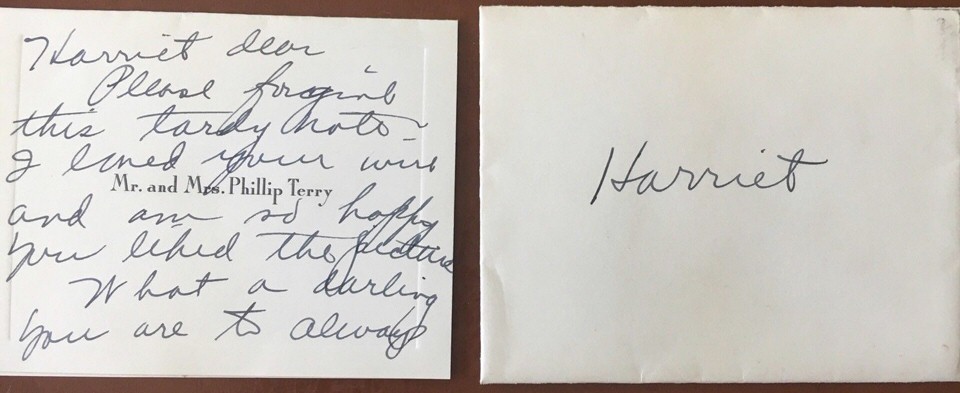 Harriet dear
Please forgive
this tardy note -
I loved your wire
Mr. and Mrs. Phillip Terry
and am so happy
you liked the picture
What a darling
you are to always
Harriet